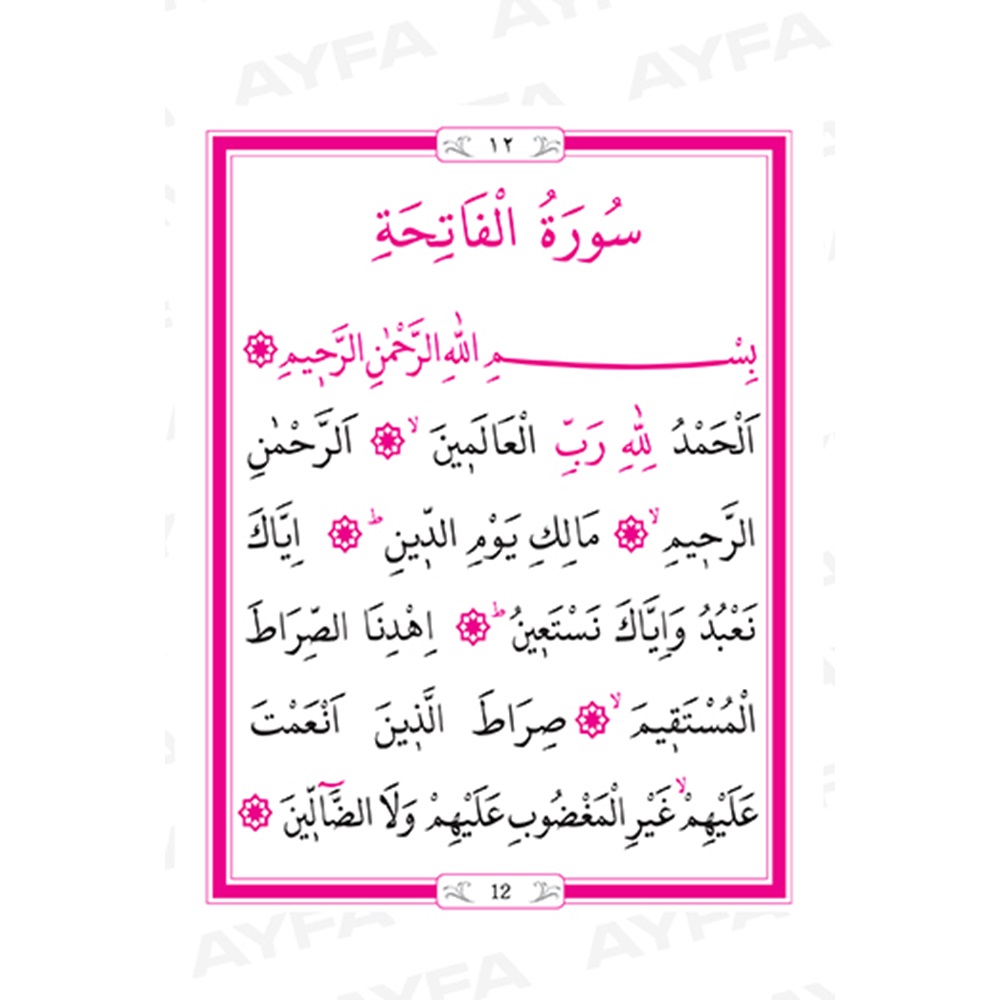 AYFA AYFA
١٢
سُورَةُ الْفَاتِحَةِ
بِسْــــــــــمِ اللّٰهِ الرَّحْمٰنِ الرَّحٖيمِ ۞
اَلْحَمْدُ لِلّٰهِ رَبِّ الْعَالَمٖينَ ۙ ۞ اَلرَّحْمٰنِ
الرَّحٖيمِ ۙ ۞ مَالِكِ يَوْمِ الدّٖينِ ؕ ۞ اِيَّاكَ
نَعْبُدُ وَاِيَّاكَ نَسْتَعٖينُ ؕ ۞ اِهْدِنَا الصِّرَاطَ
الْمُسْتَقٖيمَ ۙ ۞ صِرَاطَ الَّذٖينَ اَنْعَمْتَ
عَلَيْهِمْ ۙ غَيْرِ الْمَغْضُوبِ عَلَيْهِمْ وَلَا الضَّٓالّٖينَ ۞
12
AYFA AYFA
AYFA